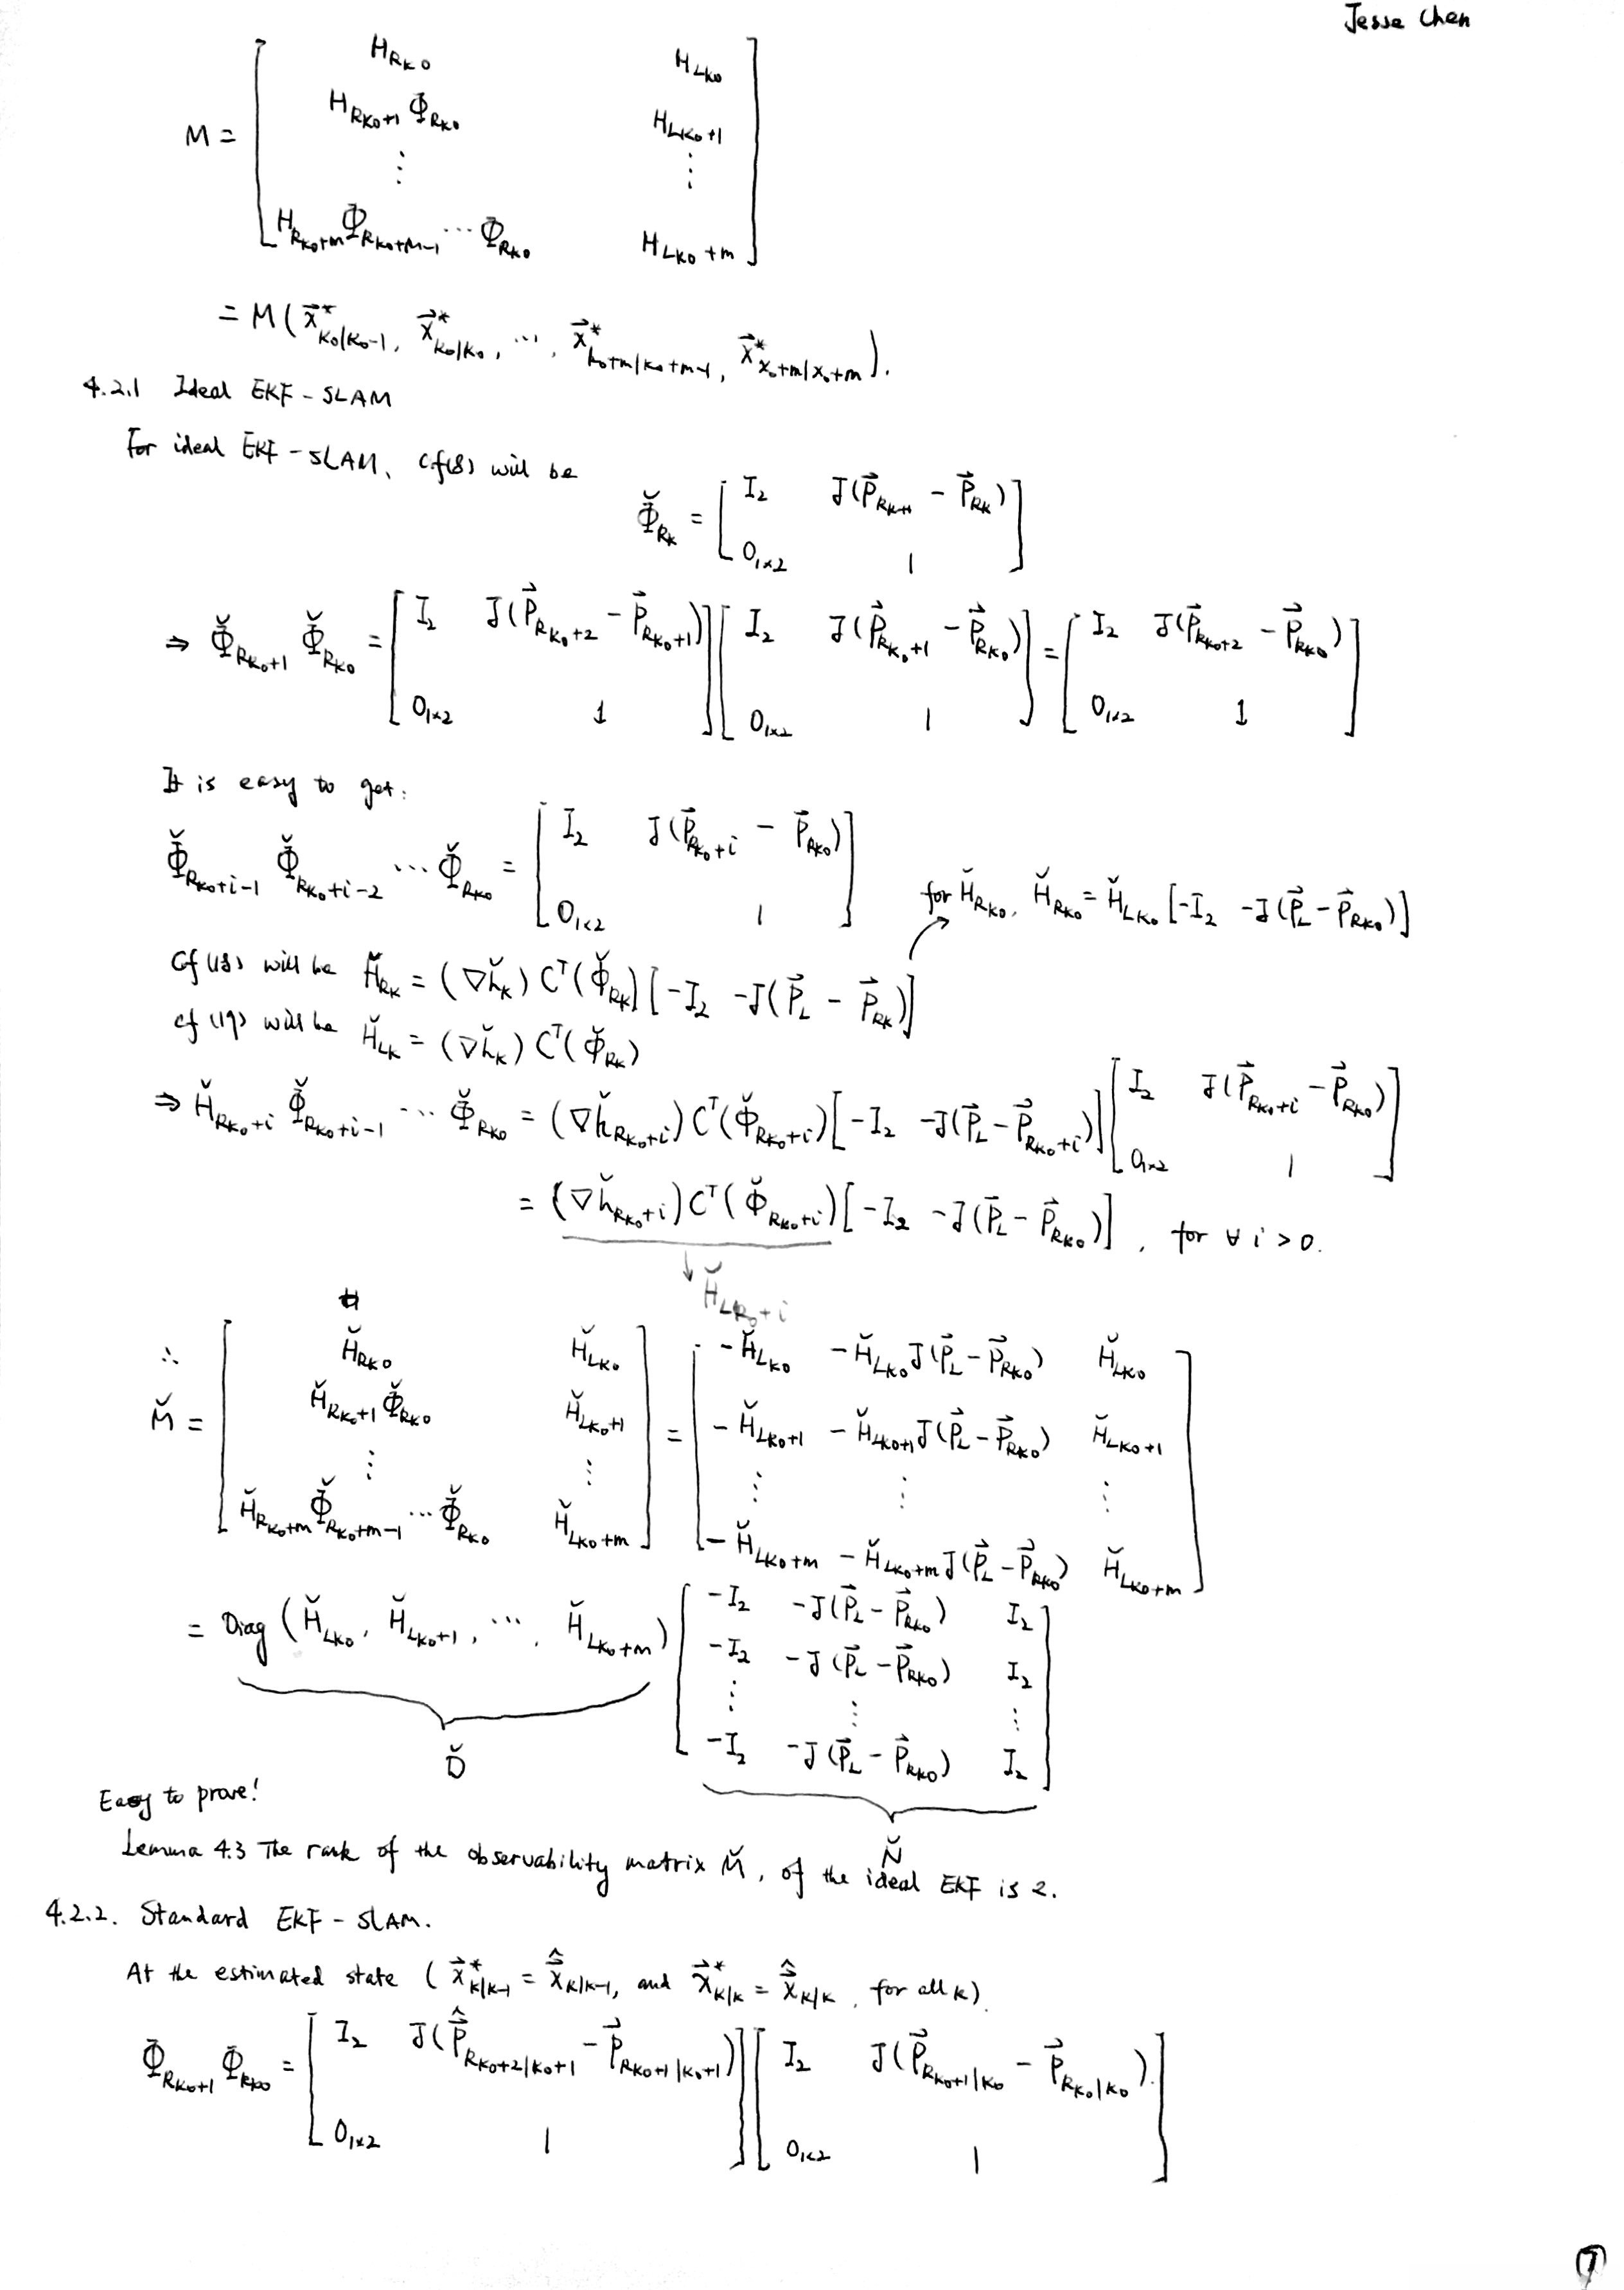 Jesse Chen
M = [ H_{RK0} H_{LK0}
H_{RK0+1} Φ_{RK0} H_{LK0+1}
⋮ ⋮
H_{RK0+m} Φ_{RK0+m-1} ⋯ Φ_{RK0} H_{LK0+m} ]
= M( x⃗*_{K0|K0-1}, x⃗*_{K0|K0}, ⋯, x⃗*_{K0+m|K0+m-1}, x⃗*_{x0+m|x0+m} ).
4.2.1 Ideal EKF-SLAM
For ideal EKF-SLAM, cf(8) will be
Φ̆_{RK} = [ I₂ J(P⃗_{RK+1} - P⃗_{RK})
0_{1×2} 1 ]
⇒ Φ̆_{RK0+1} Φ̆_{RK0} = [ I₂ J(P⃗_{RK0+2} - P⃗_{RK0+1}) ; 0_{1×2} 1 ] [ I₂ J(P⃗_{RK0+1} - P⃗_{RK0}) ; 0_{1×2} 1 ] = [ I₂ J(P⃗_{RK0+2} - P⃗_{RK0}) ; 0_{1×2} 1 ]
It is easy to get:
Φ̆_{RK0+i-1} Φ̆_{RK0+i-2} ⋯ Φ̆_{RK0} = [ I₂ J(P⃗_{RK0+i} - P⃗_{RK0}) ; 0_{1×2} 1 ]
for H̆_{RK0}, H̆_{RK0} = H̆_{LK0} [-I₂ -J(P⃗_L - P⃗_{RK0})]
cf(18) will be H̆_{RK} = (∇h̆_K) Cᵀ(Φ̆_{RK}) [-I₂ -J(P⃗_L - P⃗_{RK})]
cf(19) will be H̆_{LK} = (∇h̆_K) Cᵀ(Φ̆_{RK})
⇒ H̆_{RK0+i} Φ̆_{RK0+i-1} ⋯ Φ̆_{RK0} = (∇h̆_{RK0+i}) Cᵀ(Φ̆_{RK0+i}) [-I₂ -J(P⃗_L - P⃗_{RK0+i})] [ I₂ J(P⃗_{RK0+i} - P⃗_{RK0}) ; 0_{1×2} 1 ]
= (∇h̆_{RK0+i}) Cᵀ(Φ̆_{RK0+i}) [-I₂ -J(P⃗_L - P⃗_{RK0})], for ∀ i > 0.
↓ H̆_{LK0+i}
∴
M̆ = [ H̆_{RK0} H̆_{LK0} ; H̆_{RK0+1} Φ̆_{RK0} H̆_{LK0+1} ; ⋮ ⋮ ; H̆_{RK0+m} Φ̆_{RK0+m-1} ⋯ Φ̆_{RK0} H̆_{LK0+m} ] = [ -H̆_{LK0} -H̆_{LK0} J(P⃗_L - P⃗_{RK0}) H̆_{LK0} ; -H̆_{LK0+1} -H̆_{LK0+1} J(P⃗_L - P⃗_{RK0}) H̆_{LK0+1} ; ⋮ ⋮ ⋮ ; -H̆_{LK0+m} -H̆_{LK0+m} J(P⃗_L - P⃗_{RK0}) H̆_{LK0+m} ]
= Diag (H̆_{LK0}, H̆_{LK0+1}, ⋯, H̆_{LK0+m}) [ -I₂ -J(P⃗_L - P⃗_{RK0}) I₂ ; -I₂ -J(P⃗_L - P⃗_{RK0}) I₂ ; ⋮ ⋮ ⋮ ; -I₂ -J(P⃗_L - P⃗_{RK0}) I₂ ]
D̆
N̆
Easy to prove!
Lemma 4.3 The rank of the observability matrix M̆, of the ideal EKF is 2.
4.2.2. Standard EKF-SLAM.
At the estimated state ( x⃗*_{K|K-1} = x̂⃗_{K|K-1}, and x⃗*_{K|K} = x̂⃗_{K|K}, for all K).
Φ_{RK0+1} Φ_{RK0} = [ I₂ J(P̂⃗_{RK0+2|K0+1} - P⃗_{RK0+1|K0+1}) ; 0_{1×2} 1 ] [ I₂ J(P⃗_{RK0+1|K0} - P⃗_{RK0|K0}) ; 0_{1×2} 1 ]
⑦